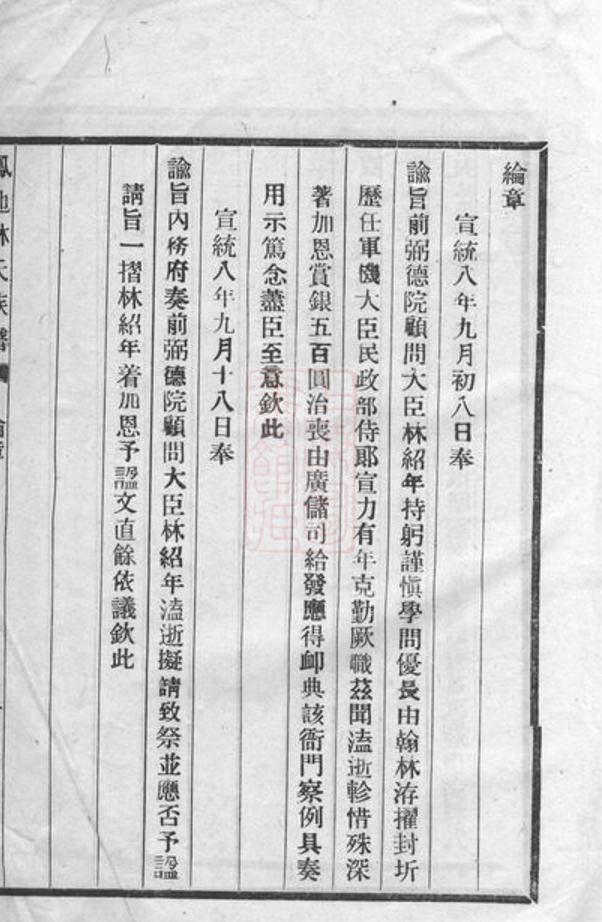 綸章
宣統八年九月初八日奉
諭旨前弼德院顧問大臣林紹年持躬謹愼學問優長由翰林洊擢封圻
歷任軍機大臣民政部侍郞宣力有年克勤厥職茲聞溘逝軫惜殊深
著加恩賞銀五百圓治喪由廣儲司給發應得卹典該衙門察例具奏
用示篤念藎臣至意欽此
宣統八年九月十八日奉
諭旨內務府奏前弼德院顧問大臣林紹年溘逝擬請致祭並應否予諡
請旨一摺林紹年着加恩予諡文直餘依議欽此
林氏族譜